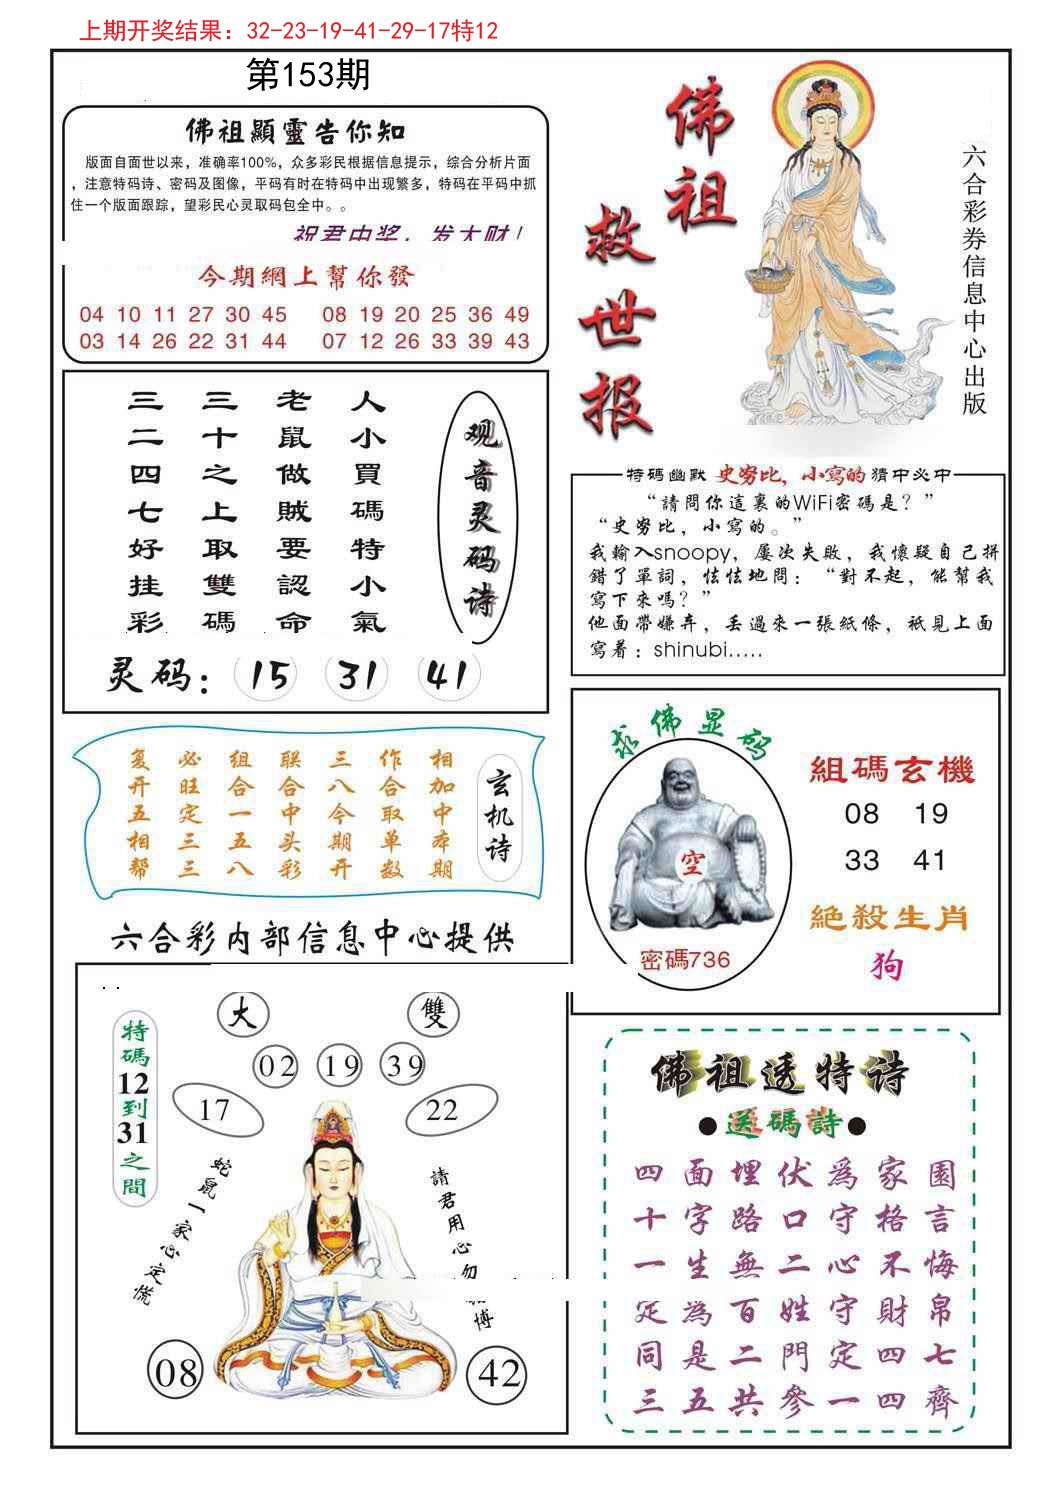 上期开奖结果：32-23-19-41-29-17特12
第153期
佛祖顯靈告你知
版面自面世以来，准确率100%，众多彩民根据信息提示，综合分析片面
，注意特码诗、密码及图像，平码有时在特码中出现繁多，特码在平码中抓
住一个版面跟踪，望彩民心灵取码包全中。。
祝君中奖，发大财！
今期網上幫你發
04 10 11 27 30 45 08 19 20 25 36 49
03 14 26 22 31 44 07 12 26 33 39 43
佛祖
救世报
六合彩券信息中心出版
观音灵码诗
人小買碼特小氣
老鼠做賊要認命
三十之上取雙碼
三二四七好挂彩
灵码：15 31 41
特碼幽默 史努比，小寫的 猜中必中
“請問你這裏的WiFi密碼是？”
“史努比，小寫的。”
我輸入snoopy，屡次失敗，我懷疑自己拼
錯了單詞，怯怯地問：“對不起，能幫我
寫下來嗎？”
他面帶嫌弃，丢過來一張紙條，衹見上面
寫着：shinubi.....
玄机诗
相加中本期
作合取单数
三八今期开
联合中头彩
组合一五八
必旺定三三
复开五相帮
求佛显码
空
密碼736
組碼玄機
08 19
33 41
絕殺生肖
狗
六合彩内部信息中心提供
特碼12到31之間
大 雙
02 19 39
17 22
蛇鼠一家心定慌
請君用心勿
博
08 42
佛祖透特诗
●送碼詩●
四面埋伏爲家園
十字路口守格言
一生無二心不悔
定為百姓守財帛
同是二門定四七
三五共參一四齊